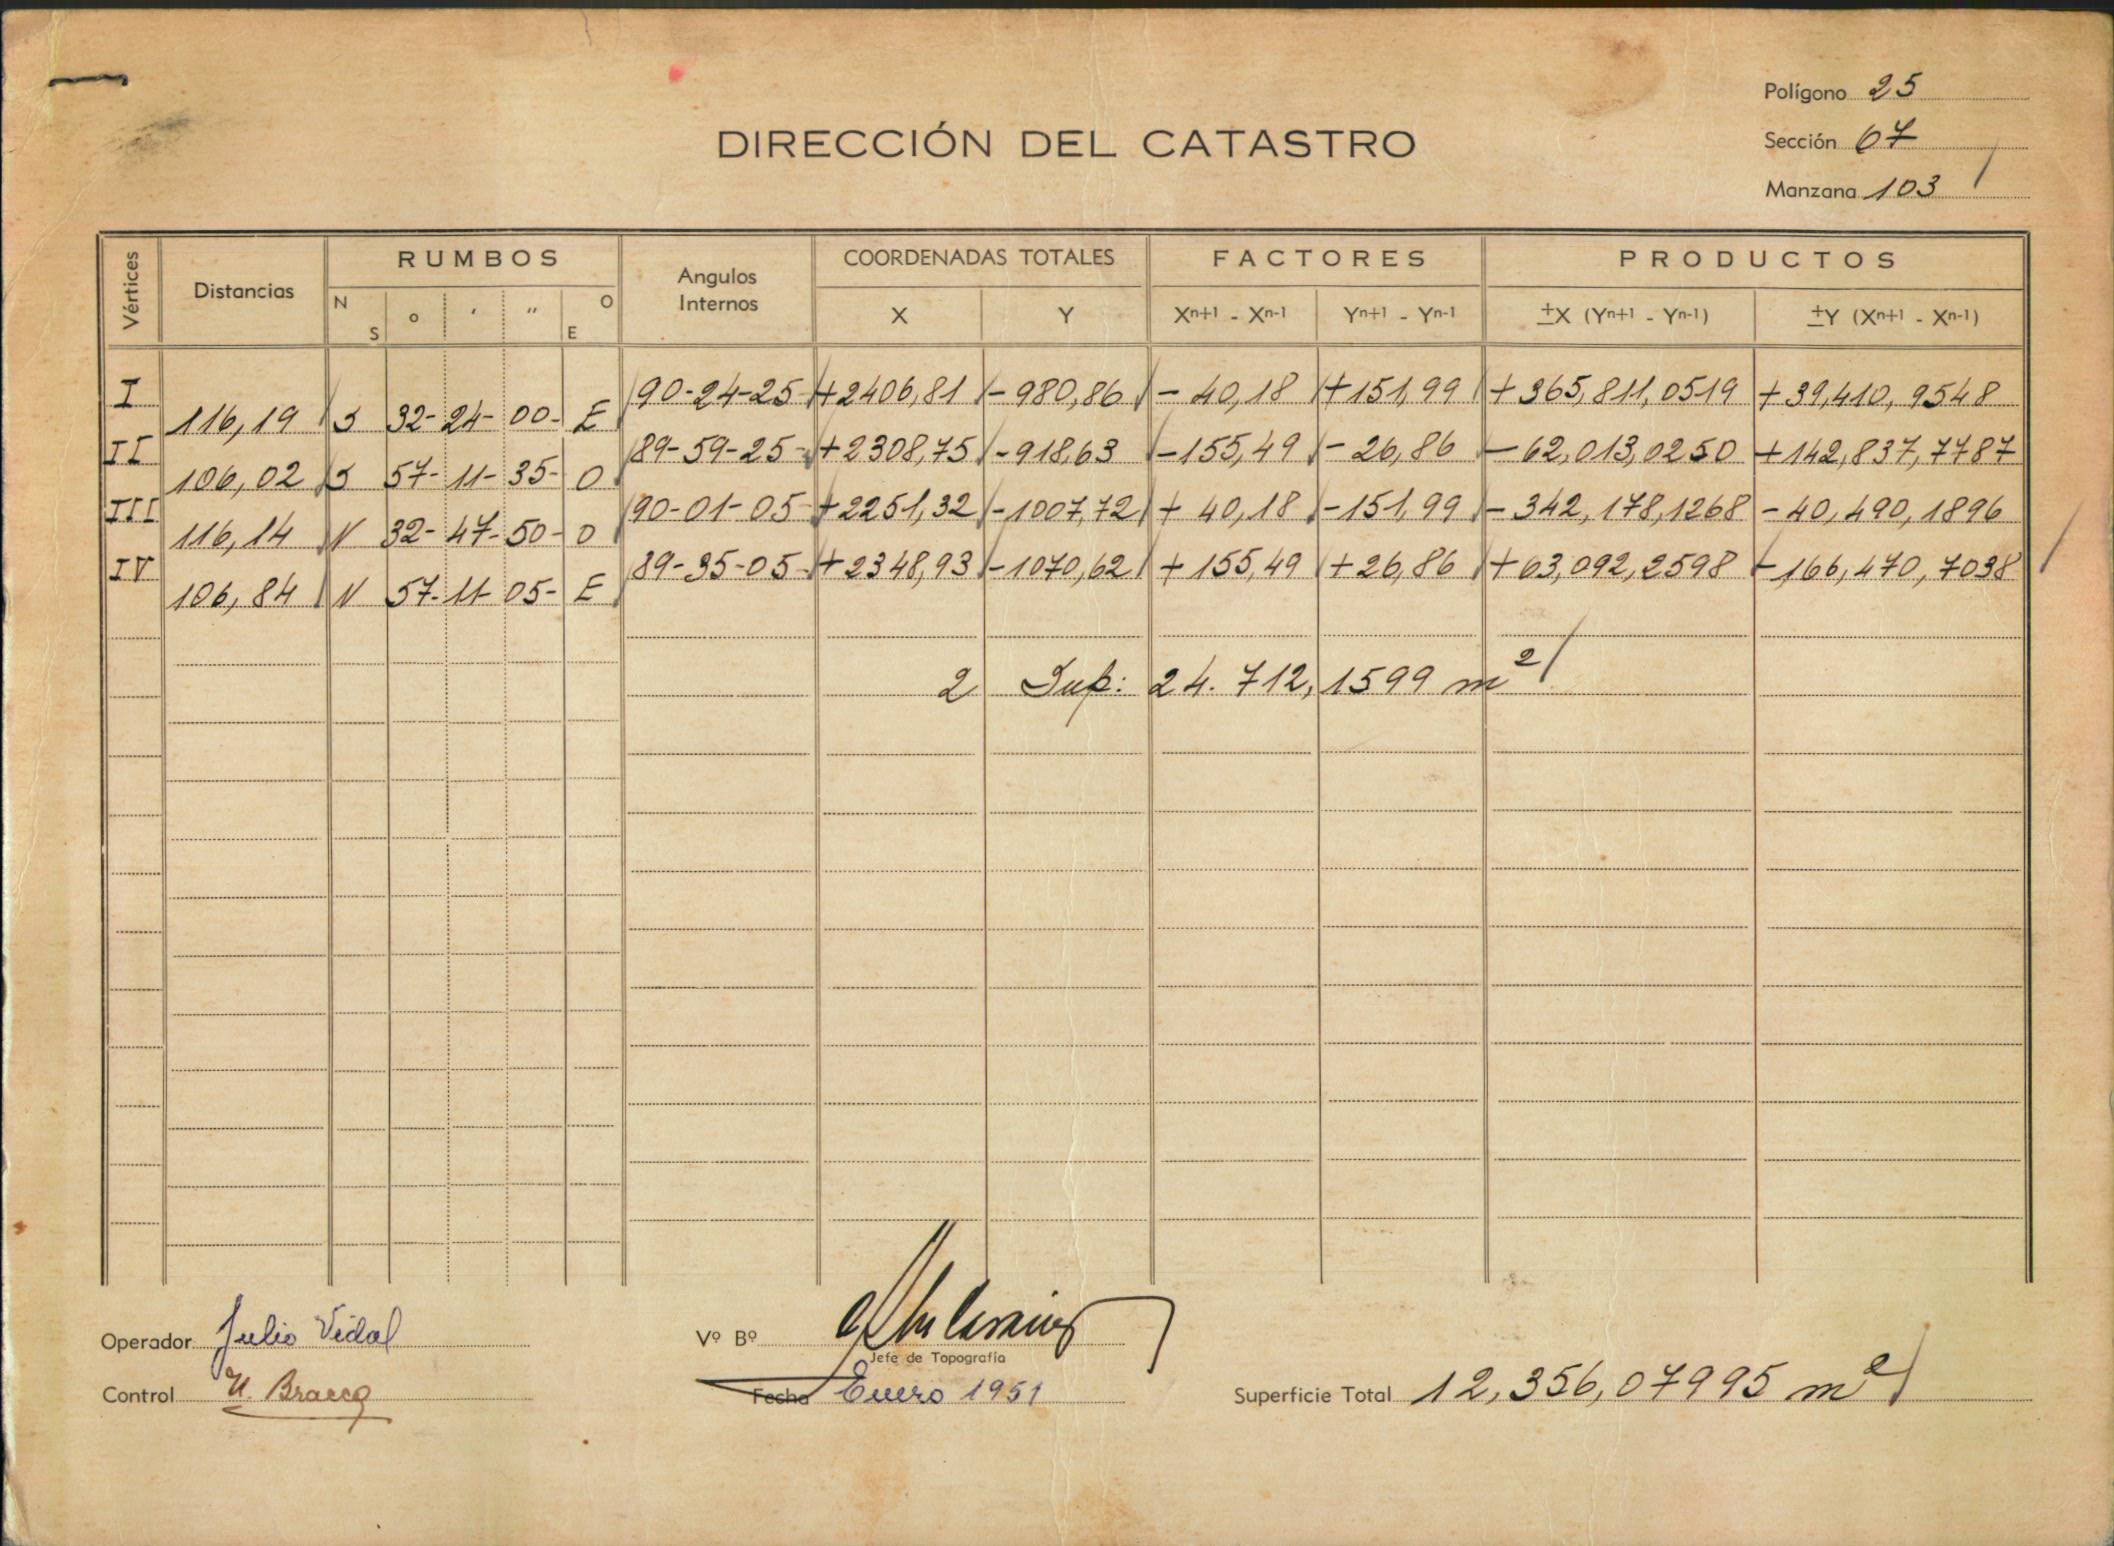 Polígono 25
DIRECCIÓN DEL CATASTRO
Sección 67
Manzana 103
Vértices Distancias RUMBOS Angulos Internos COORDENADAS TOTALES FACTORES PRODUCTOS
N S o ' '' O E X Y Xn+1 - Xn-1 Yn+1 - Yn-1 ±X (Yn+1 - Yn-1) ±Y (Xn+1 - Xn-1)
I 90-24-25 +2406,81 -980,86 -40,18 +151,99 +365,811,0519 +39,410,9548
116,19 S 32-24-00- E
II 89-59-25- +2308,75 -918,63 -155,49 -26,86 -62,013,0250 +142,837,7787
106,02 S 57-11-35- O
III 90-01-05 +2251,32 -1007,72 +40,18 -151,99 -342,178,1268 -40,490,1896
116,14 N 32-47-50- O
IV 89-35-05- +2348,93 -1070,62 +155,49 +26,86 +63,092,2598 -166,470,7038
106,84 N 57-11-05- E
2 Sup: 24.712,1599 m2
Operador Julio Vidal
Vº Bº
Jefe de Topografía
Control
Fecha Enero 1951
Superficie Total 12,356,07995 m2